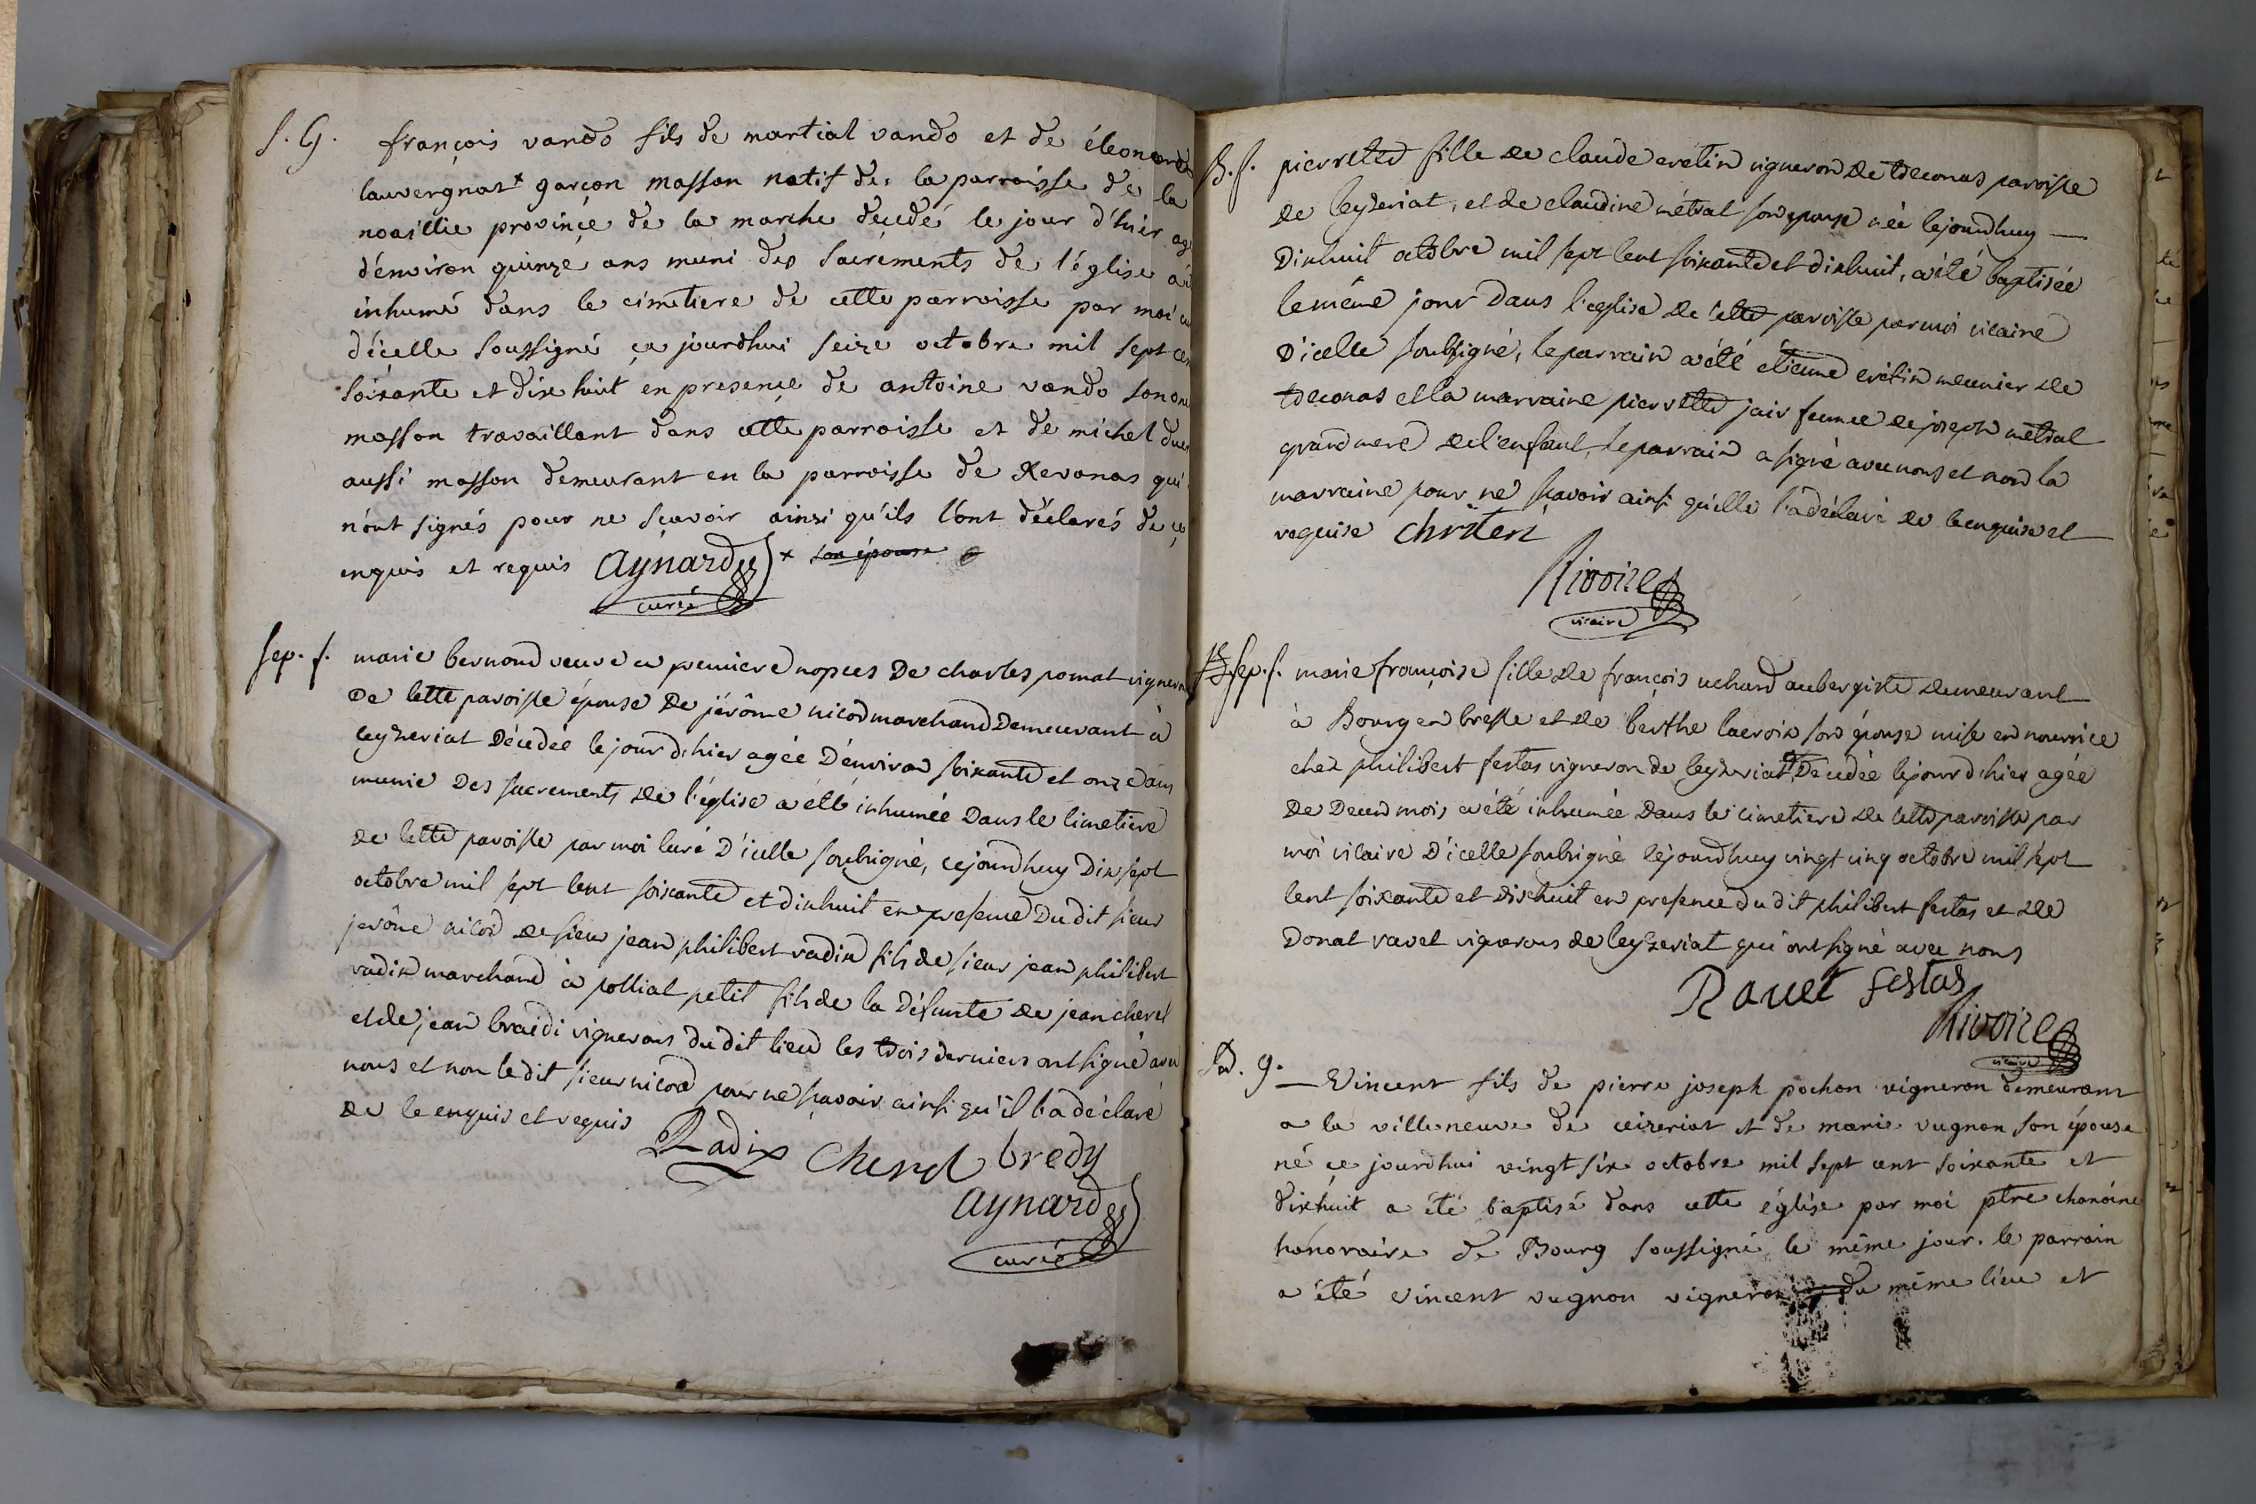 S. G. françois vando fils de martial vando et de éleonarde
lauvergnat x garçon masson natif de la parroisse de la
noaillie province de la marche decedé le jour d'hier agé
d'environ quinze ans muni des sacréments de l'église a été
inhumé dans le cimetiere de cette parroisse par moi curé
d'icelle soussigné ce jourdhui seize octobre mil sept cent
soixante et dix huit en presence de antoine vando son oncle
masson travaillant dans cette parroisse et de michel
aussi masson demeurant en la parroisse de Revonas qui
n'ont signés pour ne sçavoir ainsi qu'ils l'ont déclarés de ce
enquis et requis Aynard x son épouse
curé
Sep. f. marie bernond veuve en premiere nopces De charles pomat vigneron
De cette paroisse épouse De jérôme nicod marchand Demeurant à
ceyzeriat Décedée le jour d'hier agée D'environ soixante et onze ans
munie Des sacrements de l'église a été inhumée Dans le cimetiere
de cette paroisse par moi curé D'icelle soubsigné, cejourdhuy Dix sept
octobre mil sept cent soixante et dixhuit en presence Du dit sieur
jerôme nicod de sieur jean philibert radix fils de sieur jean philibert
radix marchand à polliat petit fils de la Défunte de jean cherel
et de jean braidi vignerons du dit lieu les trois derniers ont signé avec
nous et non le dit sieur nicod pour ne sçavoir ainsi qu'il l'a déclaré
de ce enquis et requis Radix Cherel bredy
Aynard
curé
B. f. pierrette fille de claude cretin vigneron de treconas paroisse
de ceyzeriat, et de claudine métral son épouse née cejourdhuy
Dixhuit octobre mil sept cent soixante et dixhuit, a été baptisée
le même jour Dans l'eglise de cette paroisse par moi vicaire
D'icelle soubsigné, le parrain a été étienne cretin meunier de
treconas et la marraine pierrette jair femme de joseph métral
grand mere de l'enfant, le parrain a signé avec nous et non la
marraine pour ne sçavoir ainsi qu'elle l'a déclaré de ce enquise et
requise Chriten
Rivoire
vicaire
Sep. f. marie françoise fille de françois uchard aubergiste demeurant
à Bourg en bresse et de berthe lacroix son épouse mise en nourrice
chez philibert festas vigneron de ceyzeriat Décedée le jour d'hier agée
De Deux mois a été inhumée Dans le cimetiere de cette paroisse par
moi vicaire D'icelle soubsigné cejourdhuy vingt cinq octobre mil sept
cent soixante et dixhuit en presence du dit philibert festas et de
Donat ravet vignerons de ceyzeriat qui ont signé avec nous
Ravet festas
Rivoire
vicaire
B. g. Vincent fils de pierre joseph pochon vigneron demeurant
a la villeneuve de ceizeriat et de marie vugnon son épouse
né ce jourdhui vingt six octobre mil sept cent soixante et
dixhuit a été baptisé dans cette église par moi ptre chanoine
honoraire de Bourg soussigné le même jour. le parrain
a été vincent vugnon vigneron du même lieu et